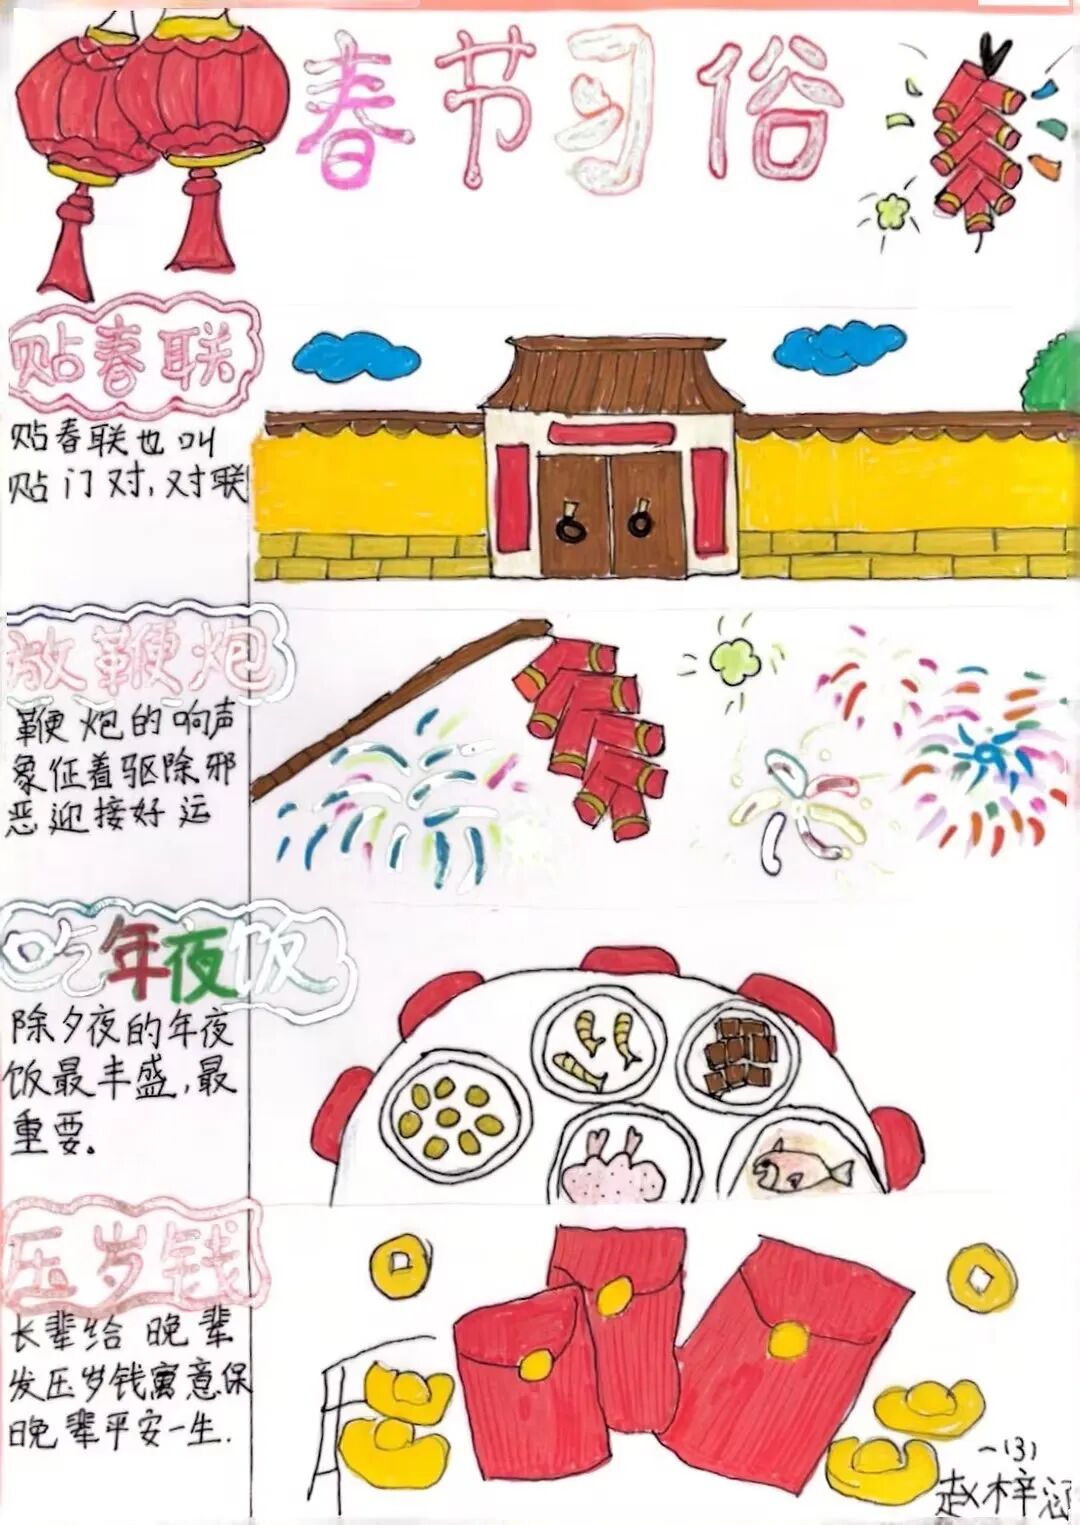 春节习俗
贴春联
贴春联也叫
贴门对,对联
放鞭炮
鞭炮的响声
象征着驱除邪
恶迎接好运
吃年夜饭
除夕夜的年夜
饭最丰盛,最
重要。
压岁钱
长辈给晚辈
发压岁钱寓意保
晚辈平安一生.
一(3)
赵梓